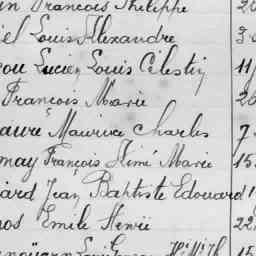 in François Philippe 20
iel Louis Alexandre 3
cou Lucien Louis Célestin 11
François Marie 26
aure Maurice Charles 7
may François Aimé Marie 15
ard Jean Baptiste Edouard 1
os Emile Henri 22
15